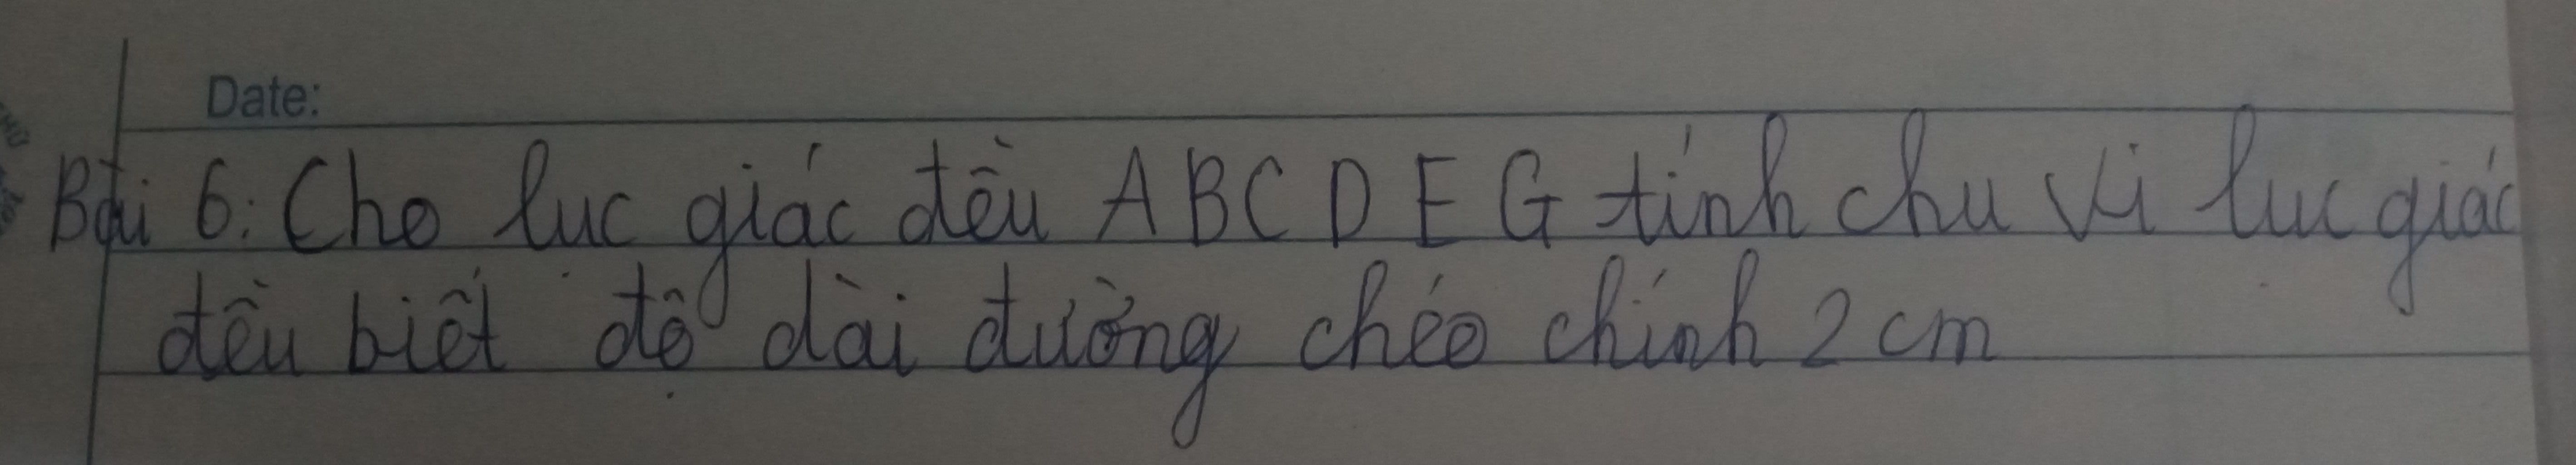 Date:
Bài 6: Cho lục giác đều ABCDEG tính chu vi lục giác
đều biết độ dài đường chéo chính 2 cm